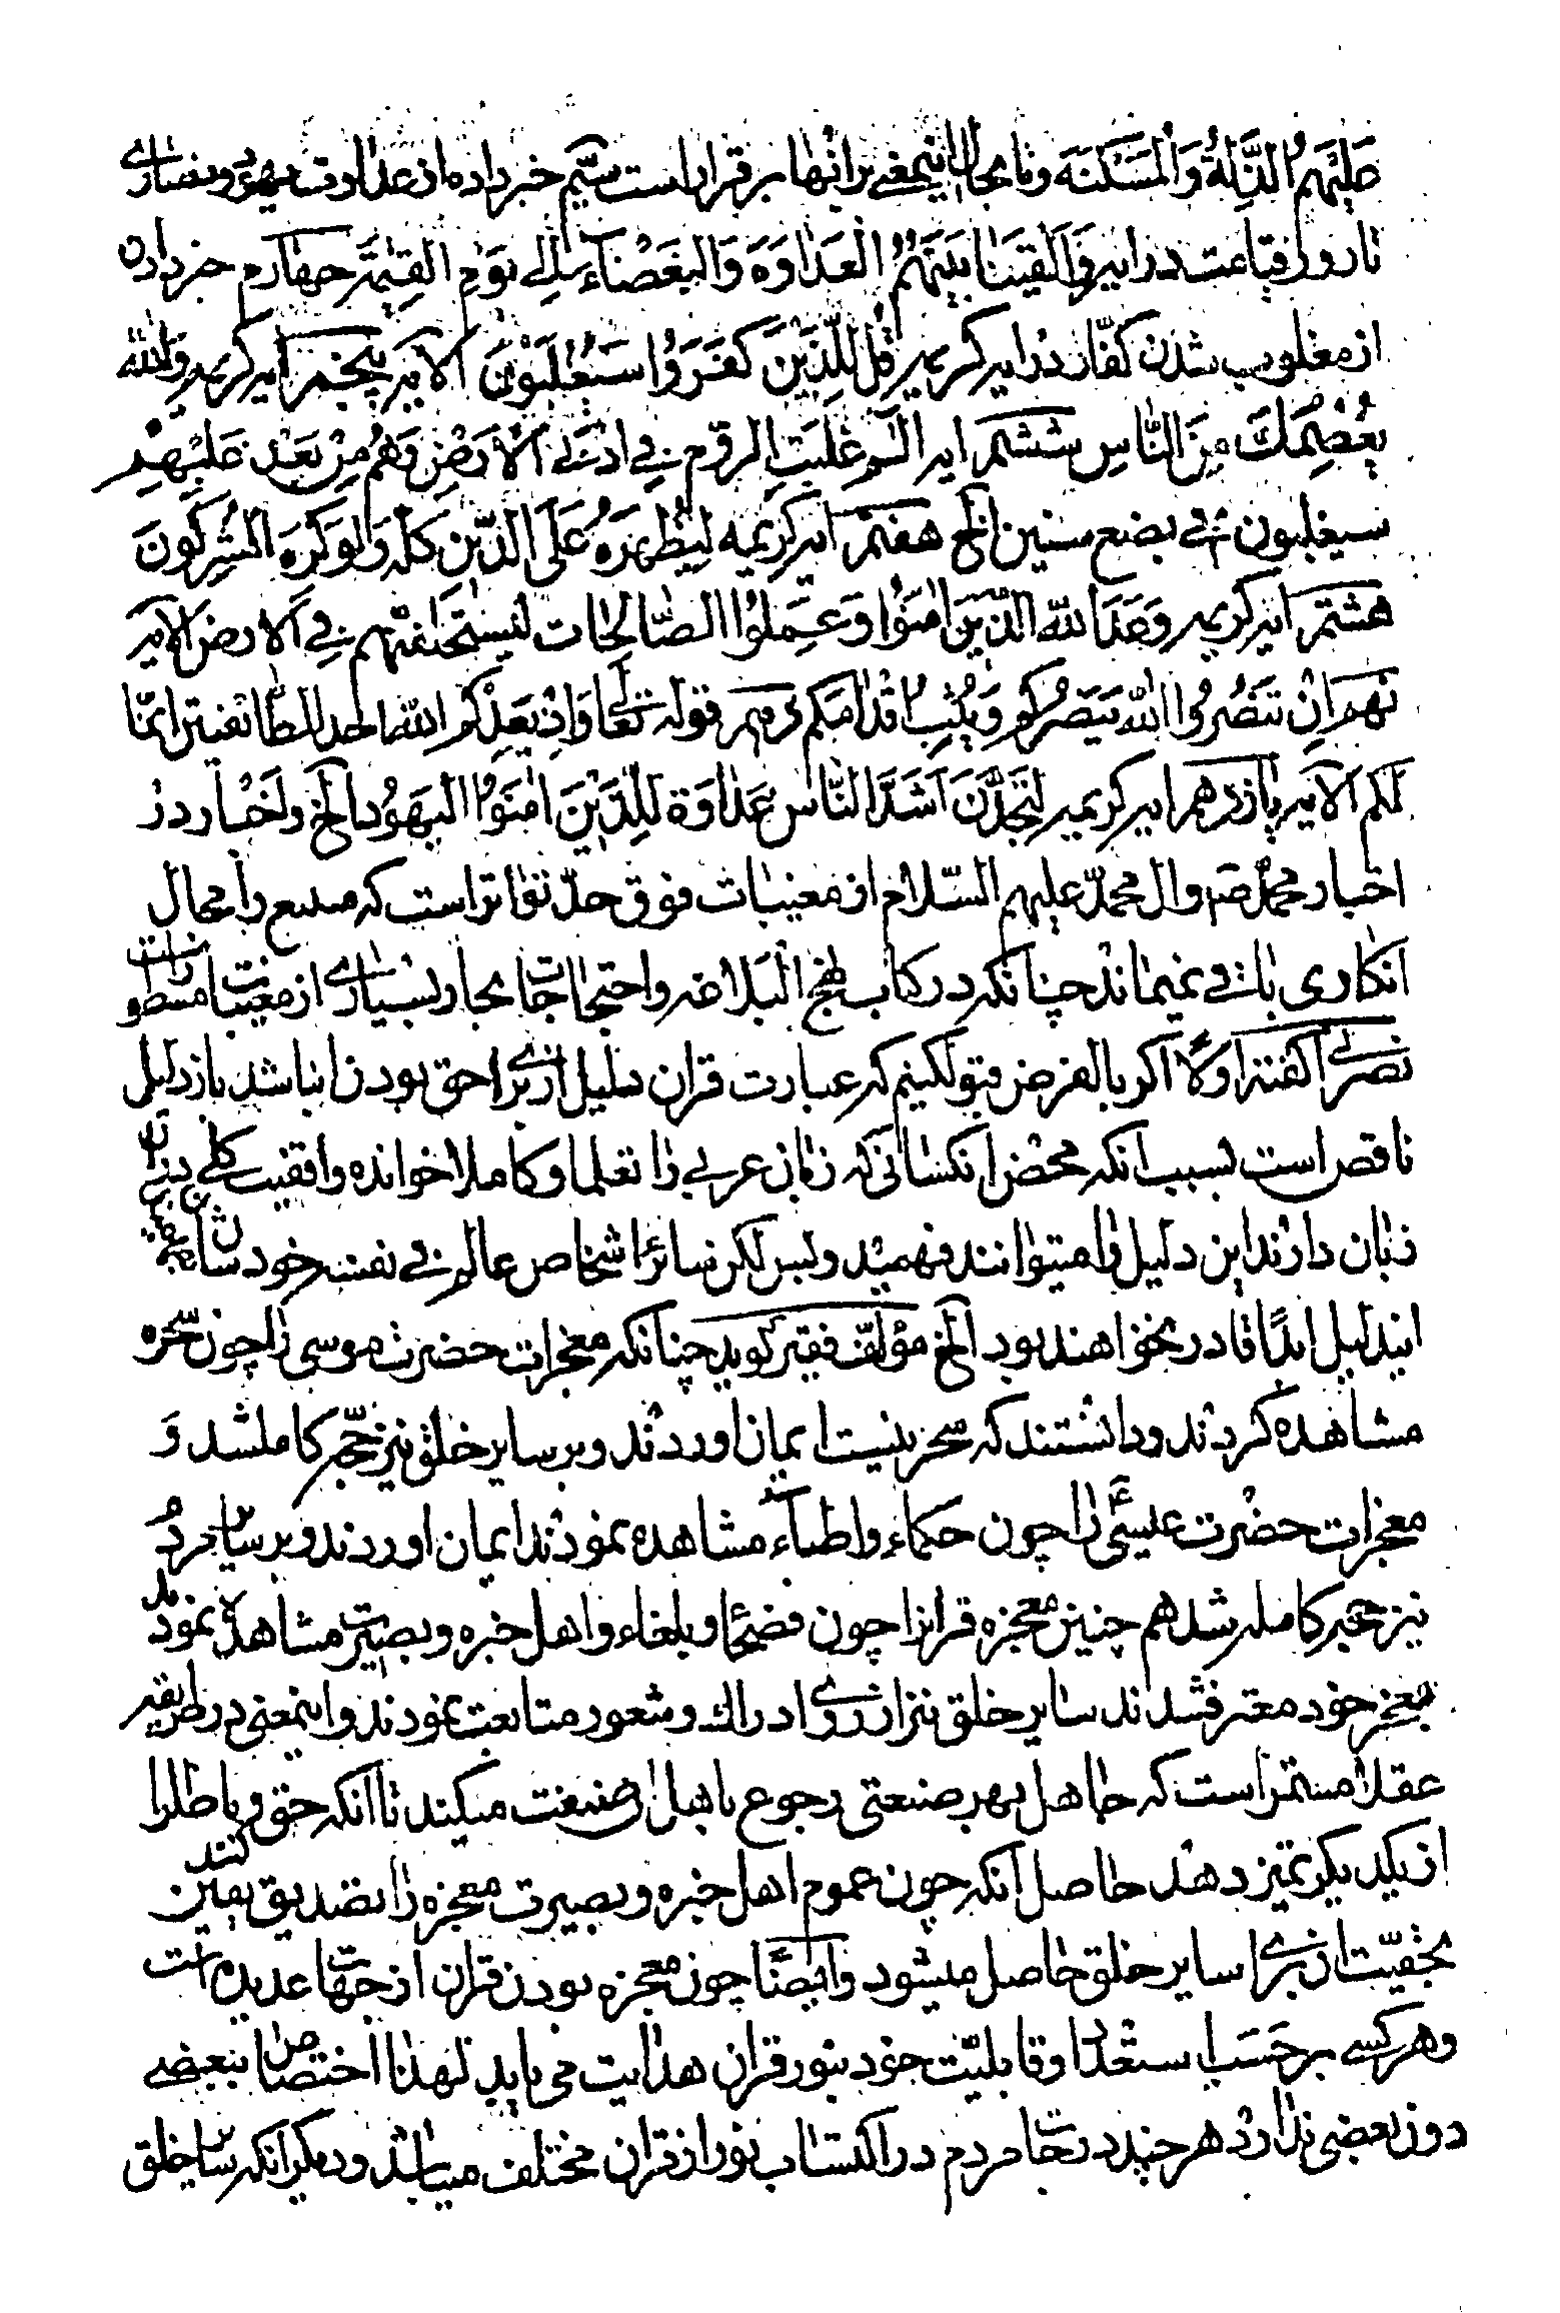 عَلَیْهِمُ الذِّلَةُ وَالْمَسْکَنَهَ وتا بحال اینمعنی برانها بر قرار است سیّم خبر داده از عداوت یهود و نصاری
تا روز قیامت در ایه وَاَلْقَیْنَا بَیْنَهُمُ الْعَدٰاوَهَ وَالْبَغْضٰاءَ اِلٰی یَوْمِ الْقِیٰمَةِ چهارم خبر دادن
از مغلوب شدن کفّار در ایه کریمه قُلْ لِلَّذِیْنَ کَفَرَوُا سَتُغْلَبُوْنَ الایه پنجم ایه کریمه وَاللهُ
یَعْصِمُکَ مِنَ النّٰاسِ ششم ایه الٓم غُلِبَتِ الروّم فِی اَدْنَی الْاَرْضِ وَهُمْ مِنْ بَعْدِ غَلَبِهِمْ
سیغلبون فی بضع سنین الخ هفتم ایه کریمه لِیُظْهِرَهُ عَلَی الدّیْنِ کلّه وَلَوْ کَرِهَ الْمُشْرِکُونَ
هشتم ایه کریمه وَعَدَ اللّه الذّیَنَ اٰمَنَوُا وَعَمِلُوا الصّٰالِحٰات لَیَسْتَخْلِفَنَّهم فِی الْاَرضِ الایه
نهم اِنْ تَنْصُرُوا اللّه یَنْصُرْکُم وَیُثَبِّتْ اَقْدٰامَکم دهم قوله تعٰالی وَاِذْ یَعِدُکُم اللهُ احدی الطّٰائفتین انّها
لکم الآیه یازدهم ایه کریمه لَتَجِدَّنَ اَشَدَّ النّٰاسِ عَدٰاوَة لِلَّذِیْنَ اٰمَنَوُا الْیَهَوُد الخ و اَخْبٰار در
اخبار محمّد ص و ال محمّد علیهم السّلام از مغیبات فوق حدّ تواتر است که متتبع را مجال
انکاری باقی نمیماند چنانکه در کتاب نهج البلاغه و احتجاجات بحار بسیاری از مغیبات مسطور است
نصرانی گفته اولاً اگر بالفرض قبول کنیم که عبارت قران دلیل از برا حق بودن انباشد باز دلیلی
ناقص است بسبب انکه محض انکسانی که زبان عربی را تعلما و کاملا خوانده و اقفیت کلی بدان
زبان دارند این دلیل را میتوانند فهمید و بس لکن سائر اشخاص عالم فی نفسه خود شان بفهمیدن
ایندلیل ابداً قادر نخواهند بود الخ مؤلّف فقیر گوید چنانکه معجزات حضرت موسی را چون سحره
مشاهده کردند و دانستند که سحر نیست ایمان اوردند و بر سایر خلق نیز حجّه کامل شد وَ
معجزات حضرت عیسیٰ ع را چون حکماء و اطباء مشاهده نمودند ایمان اوردند و بر سایر مردُم
نیز حجه کامله شد هم چنین معجزه قرانرا چون فصحا و بلغاء و اهل خبره و بصیرت مشاهده نمودند
بعجز خود معترف شدند سایر خلق نیز از روی ادراک و شعور متابعت نمودند و اینمعنی در طریقه
عقلاء مستمر است که جاهل بهر صنعتی رجوع باهل ان صنعت میکند تا انکه حق و باطل را
از یکدیگر تمیز دهد حاصل انکه چون عموم اهل خبره و بصیرت معجزه را تصدیق کنند یقین
بحقیّت ان برای سایر خلق حاصل میشود و ایضًا چون معجزه بودن قران از جهات عدیده است
و هر کسی بر حَسَب استعداد و قابلیّت خود بنور قران هدایت می یابد لهذا اختصاص ببعضی
دون بعضی ندارد هر چند درجات مردم در اکتساب نور از قران مختلف میباشد و دیگر انکه سایر خلق